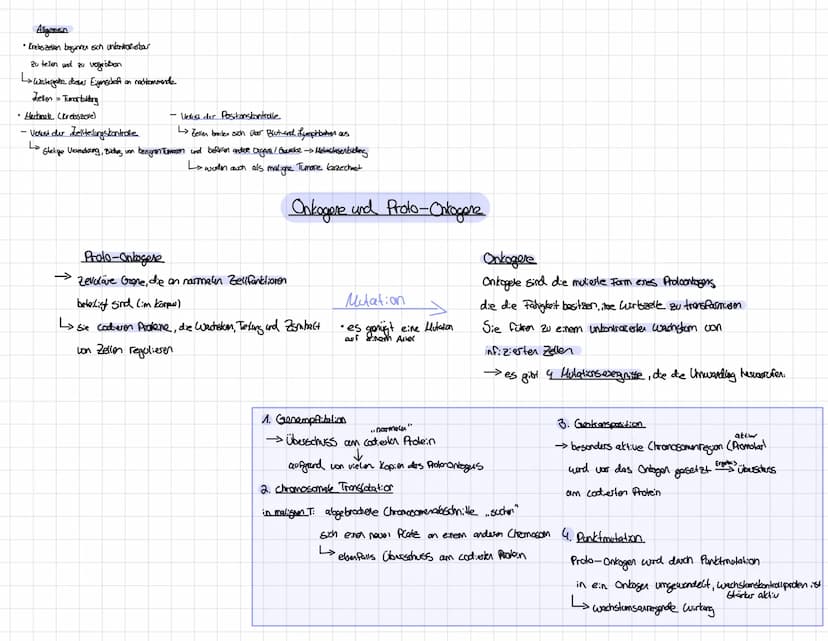 Allgemein
• Krebszellen beginnen sich unkontrollierbar
zu teilen und zu vergrößern
↳ Weitergabe dieser Eigenschaft an nachkommende
Zellen = Tumorbildung
• Merkmale (Krebszelle)
– Verlust der Zellteilungskontrolle
↳ ständige Vermehrung, Bildung von benignen Tumoren
– Verlust der Positionskontrolle
↳ Zellen breiten sich über Blut- und Lymphbahnen aus
und befallen andere Organe / Gewebe → Metastasenbildung
↳ werden auch als maligne Tumore bezeichnet
Onkogene und Proto-Onkogene
Proto-Onkogene
→ Zelluläre Gene, die an normalen Zellfunktionen
beteiligt sind (im Körper)
↳ sie codieren Proteine, die Wachstum, Teilung und
von Zellen regulieren
Mutation
• es genügt eine Mutation
auf einem Allel
Onkogene
Onkogene sind die mutierte Form eines Protoonkogens,
die die Fähigkeit besitzen, ihre Wirtszelle zu transformieren
Sie führen zu einem unkontrollierten Wachstum von
infizierten Zellen
→ es gibt 4 Mutationsereignisse, die die Umwandlung hervorrufen.
1. Genamplifikation
→ Überschuss am codierten „normalen" Protein
↓
aufgrund von vielen Kopien des Proto-Onkogens
2. chromosomale Translokation
in malignen T: abgebrochene Chromosomenabschnitte „suchen"
sich einen neuen Platz an einem anderen Chromosom
↳ ebenfalls Überschuss am codierten Protein
3. Gentransposition
→ besonders aktive Chromosomenregion (aktiver Promotor)
wird vor das Onkogen gesetzt Ergebnis → Überschuss
am codierten Protein
4. Punktmutation
Proto-Onkogen wird durch Punktmutation
in ein Onkogen umgewandelt, Wachstumskontrollprotein ist
stärker aktiv
↳ wachstumsanregende Wirkung